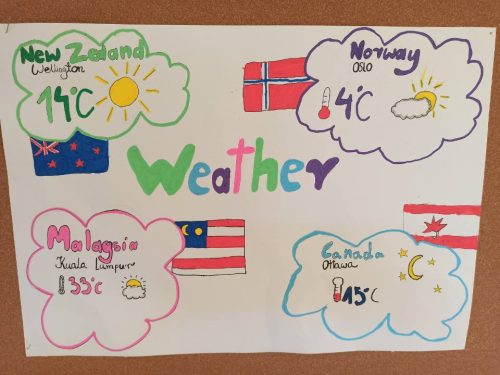 New Zeland
Wellington
14°C
Norway
OSLO
4°C
Weather
Malaysia
Kuala Lumpur
33°C
Canada
Ottawa
15°C